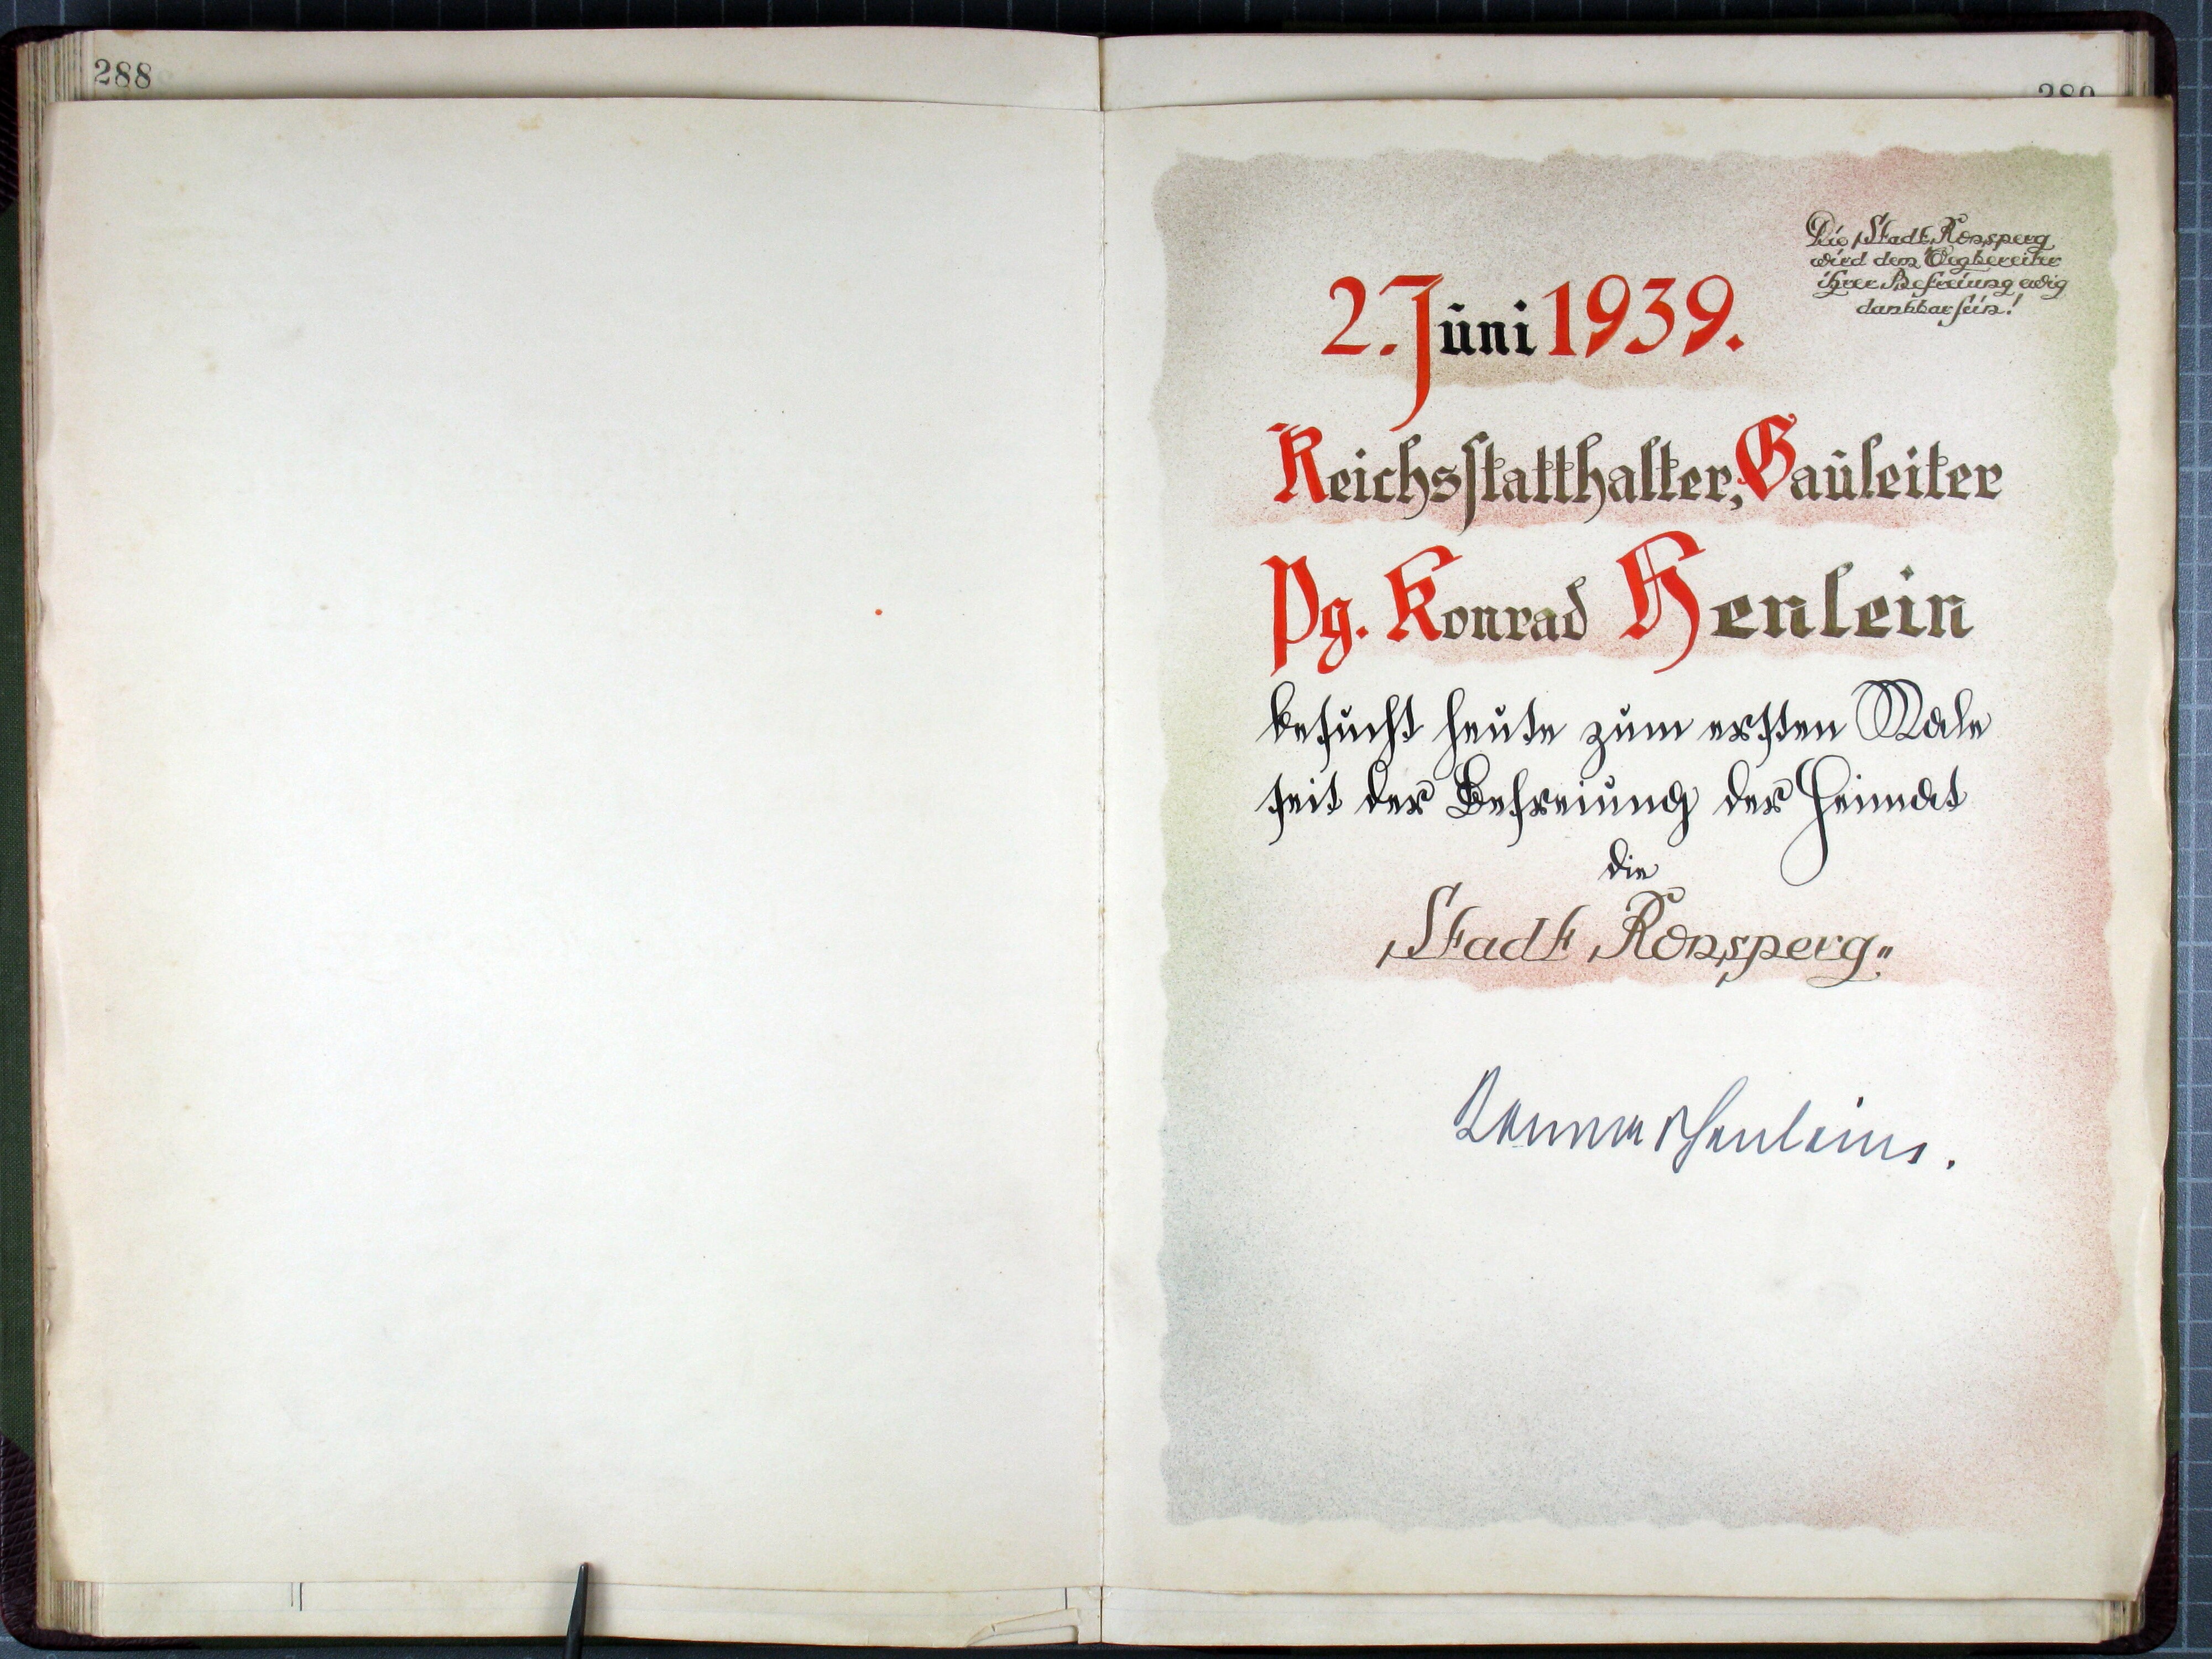 288
289
Die Stadt Ronsperg
wird dem Wegbereiter
ihrer Befreiung ewig
dankbar sein!
2. Juni 1939.
Reichsstatthalter, Gauleiter
Pg. Konrad Henlein
besucht heute zum ersten Male
seit der Befreiung der Heimat
die
„Stadt Ronsperg“
Konrad Henlein.